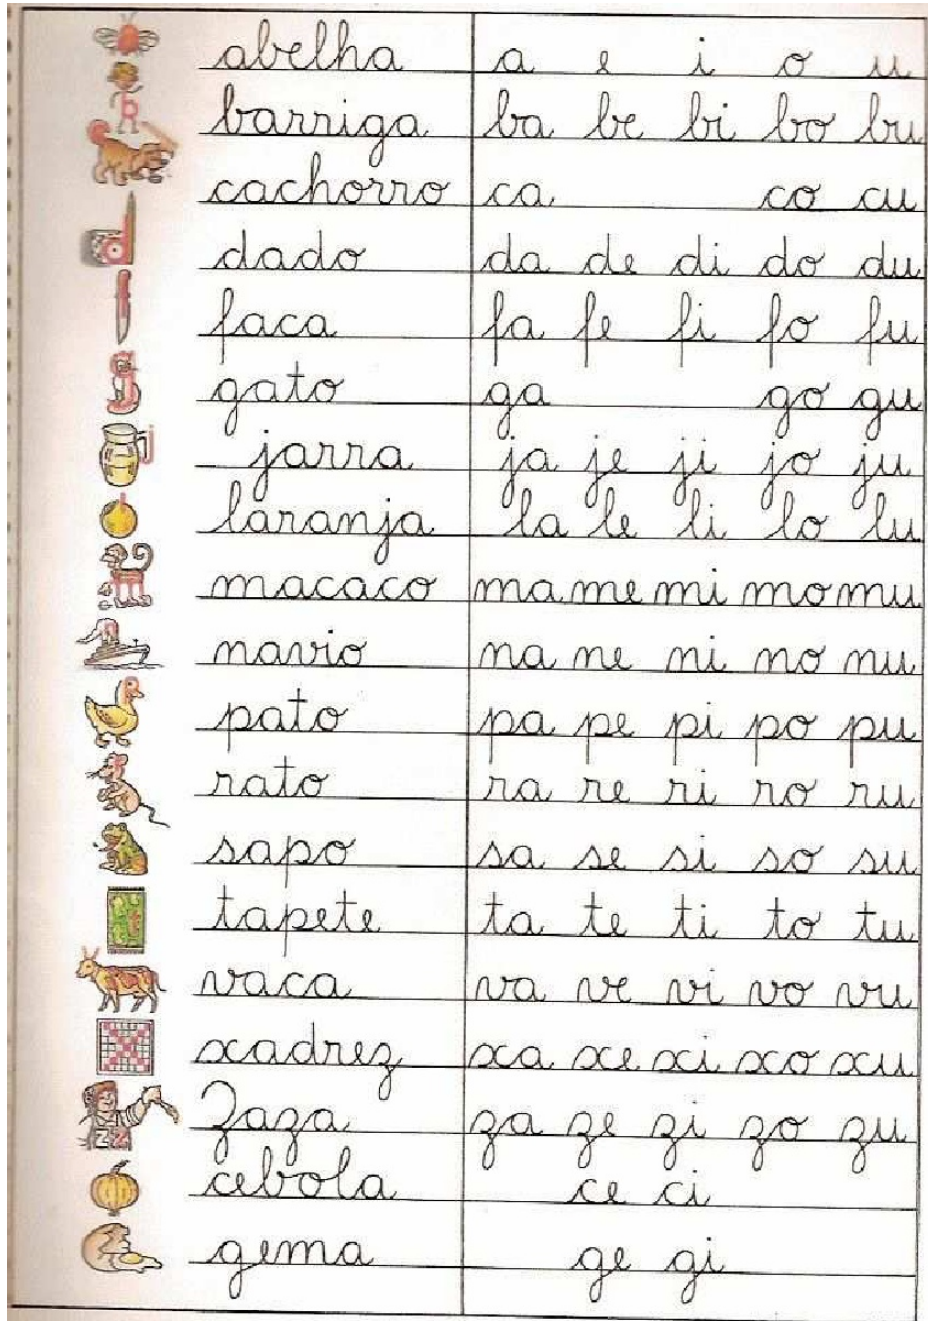 abelha a e i o u
barriga ba be bi bo bu
cachorro ca co cu
dado da de di do du
faca fa fe fi fo fu
gato ga go gu
jarra ja je ji jo ju
laranja la le li lo lu
macaco ma me mi mo mu
navio na ne ni no nu
pato pa pe pi po pu
rato ra re ri ro ru
sapo sa se si so su
tapete ta te ti to tu
vaca va ve vi vo vu
xadrez xa xe xi xo xu
Zaza za ze zi zo zu
cebola ce ci
gema ge gi